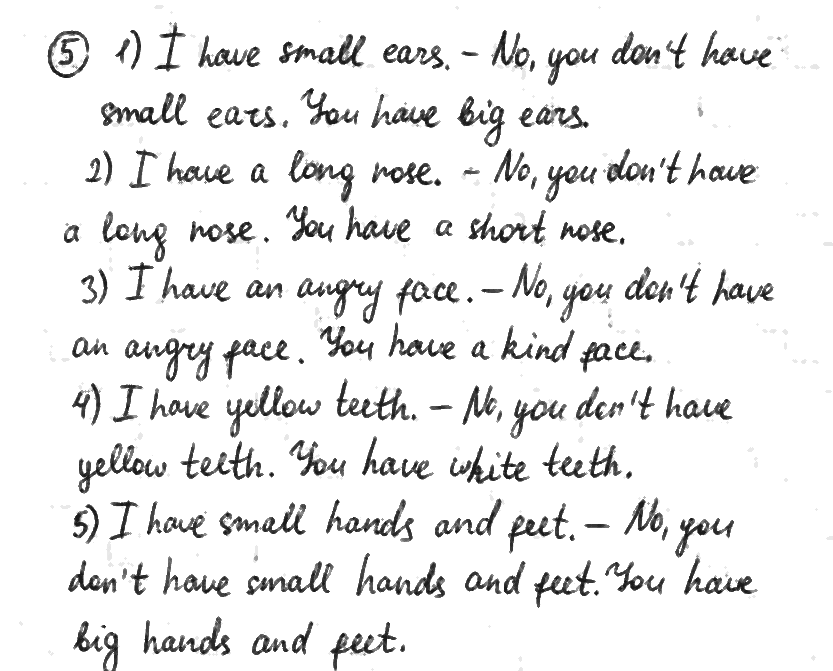 ⑤ 1) I have small ears. – No, you don't have
small ears. You have big ears.
2) I have a long nose. – No, you don't have
a long nose. You have a short nose.
3) I have an angry face. – No, you don't have
an angry face. You have a kind face.
4) I have yellow teeth. – No, you don't have
yellow teeth. You have white teeth.
5) I have small hands and feet. – No, you
don't have small hands and feet. You have
big hands and feet.